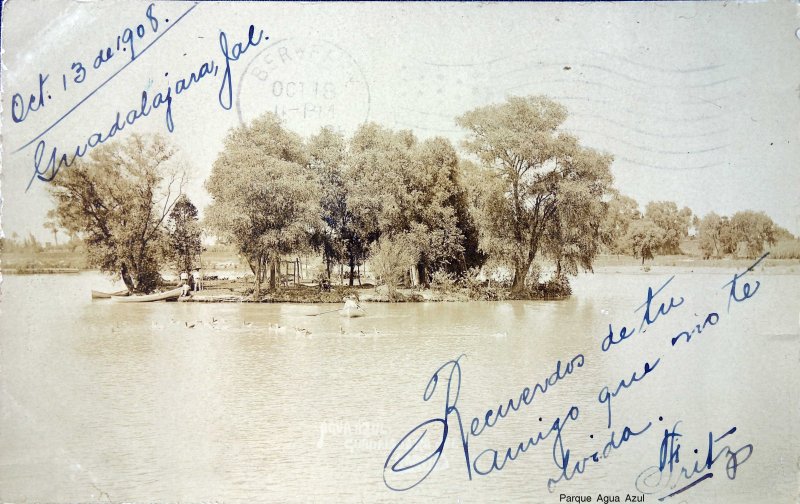 Oct. 13 de 1908.
Guadalajara, Jal.
OCT 18
Recuerdos de tu
amigo que no te
olvida.
Fritz
AGUA AZUL
Parque Agua Azul